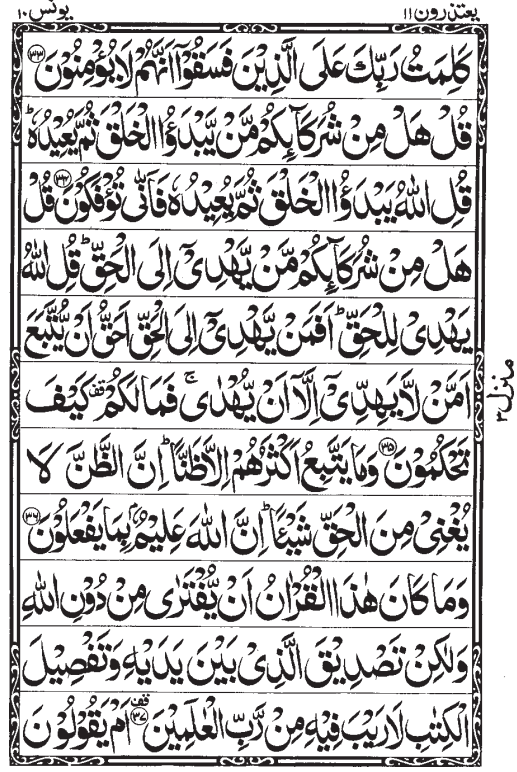 يعتذرون ۱۱
يونس ۱۰
كَلِمَتُ رَبِّكَ عَلَى الَّذِيْنَ فَسَقُوْۤا اَنَّهُمْ لَا يُؤْمِنُوْنَ ﴿۳۳﴾
قُلْ هَلْ مِنْ شُرَكَآئِكُمْ مَّنْ يَّبْدَؤُا الْخَلْقَ ثُمَّ يُعِيْدُهٗ ؕ
قُلِ اللّٰهُ يَبْدَؤُا الْخَلْقَ ثُمَّ يُعِيْدُهٗ فَاَنّٰى تُؤْفَكُوْنَ ﴿۳۴﴾ قُلْ
هَلْ مِنْ شُرَكَآئِكُمْ مَّنْ يَّهْدِيْۤ اِلَى الْحَقِّ ؕ قُلِ اللّٰهُ
يَهْدِيْ لِلْحَقِّ ؕ اَفَمَنْ يَّهْدِيْۤ اِلَى الْحَقِّ اَحَقُّ اَنْ يُّتَّبَعَ
اَمَّنْ لَّا يَهِدِّيْۤ اِلَّاۤ اَنْ يُّهْدٰى ۚ فَمَا لَكُمْ قف كَيْفَ
تَحْكُمُوْنَ ﴿۳۵﴾ وَمَا يَتَّبِعُ اَكْثَرُهُمْ اِلَّا ظَنًّا ؕ اِنَّ الظَّنَّ لَا
يُغْنِيْ مِنَ الْحَقِّ شَيْئًا ؕ اِنَّ اللّٰهَ عَلِيْمٌۢ بِمَا يَفْعَلُوْنَ ﴿۳۶﴾
وَمَا كَانَ هٰذَا الْقُرْاٰنُ اَنْ يُّفْتَرٰى مِنْ دُوْنِ اللّٰهِ
وَلٰكِنْ تَصْدِيْقَ الَّذِيْ بَيْنَ يَدَيْهِ وَتَفْصِيْلَ
الْكِتٰبِ لَا رَيْبَ فِيْهِ مِنْ رَّبِّ الْعٰلَمِيْنَ ﴿۳۷﴾ قف اَمْ يَقُوْلُوْنَ
منزل ۳